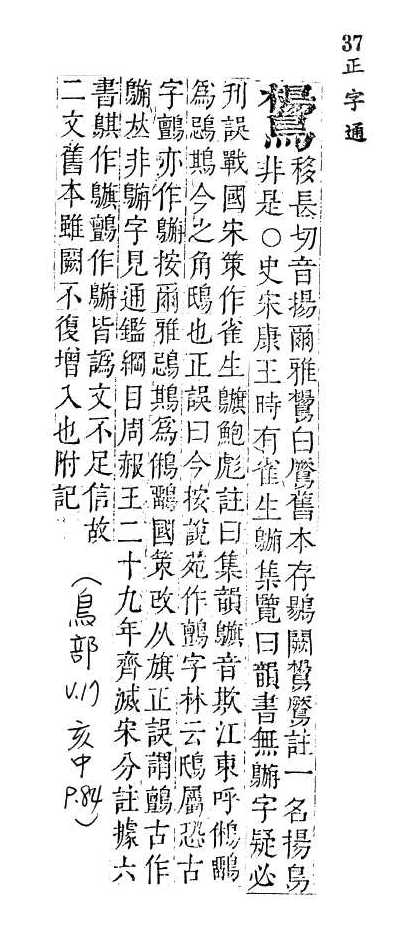 37 正字通
鸉
移長切音揚爾雅鸉白鷢舊本存闕鷢註一名揚鳥
非是○史宋康王時有雀生集覽曰韻書無字疑必
刊誤戰國宋策作雀生鮑彪註曰集韻音欺江東呼鵂鶹
爲鵋鶀今之角鴟也正誤曰今按說苑作鸇字林云鴟屬恐古
字鸇亦作按爾雅鵋鶀爲鵂鶹國策改从旗正誤謂鸇古作
㚘非字見通鑑綱目周赧王二十九年齊滅宋分註據六
書鶀作鸇作皆譌文不足信故
二文舊本雖闕不復增入也附記
(鳥部 v.17 亥中 P.84)